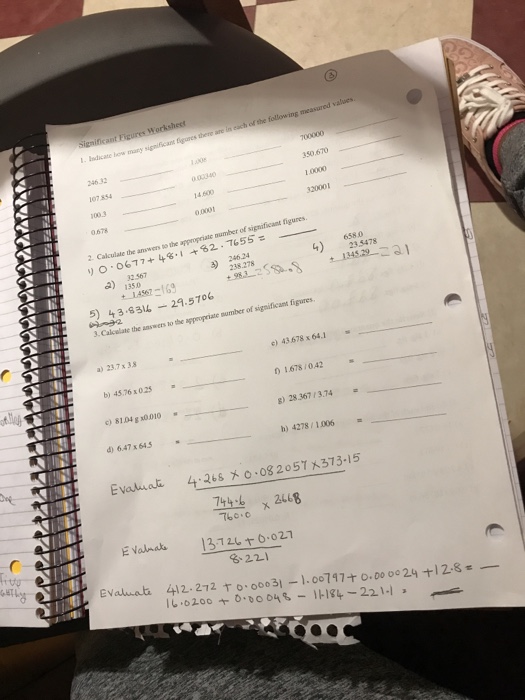 3
Significant Figures Worksheet
1. Indicate how many significant figures there are in each of the following measured values.
246.32 1.008 700000
107.854 0.00340 350.670
100.3 14.600 1.0000
0.678 0.0001 320001
2. Calculate the answers to the appropriate number of significant figures.
1) 0.0677 + 48.1 + 82.7655 =
2) 32.567
135.0
+ 1.4567 =169
3) 246.24
238.278
+ 98.3 =582.8
4) 658.0
23.5478
+ 1345.29 =21
5) 43.8316 - 29.5706
3. Calculate the answers to the appropriate number of significant figures.
a) 23.7 x 3.8 = e) 43.678 x 64.1 =
b) 45.76 x 0.25 = f) 1.678 / 0.42 =
c) 81.04 g x0.010 = g) 28.367 / 3.74 =
d) 6.47 x 64.5 = h) 4278 / 1.006 =
Evaluate 4.268 x 0.082057 x 373.15
744.6
760.0 x 2668
Evaluate 13.726 + 0.027
8.221
Evaluate 412.272 + 0.00031 - 1.00797 + 0.000024 + 12.8 =
16.0200 + 0.00048 - 11.184 - 221.1 =